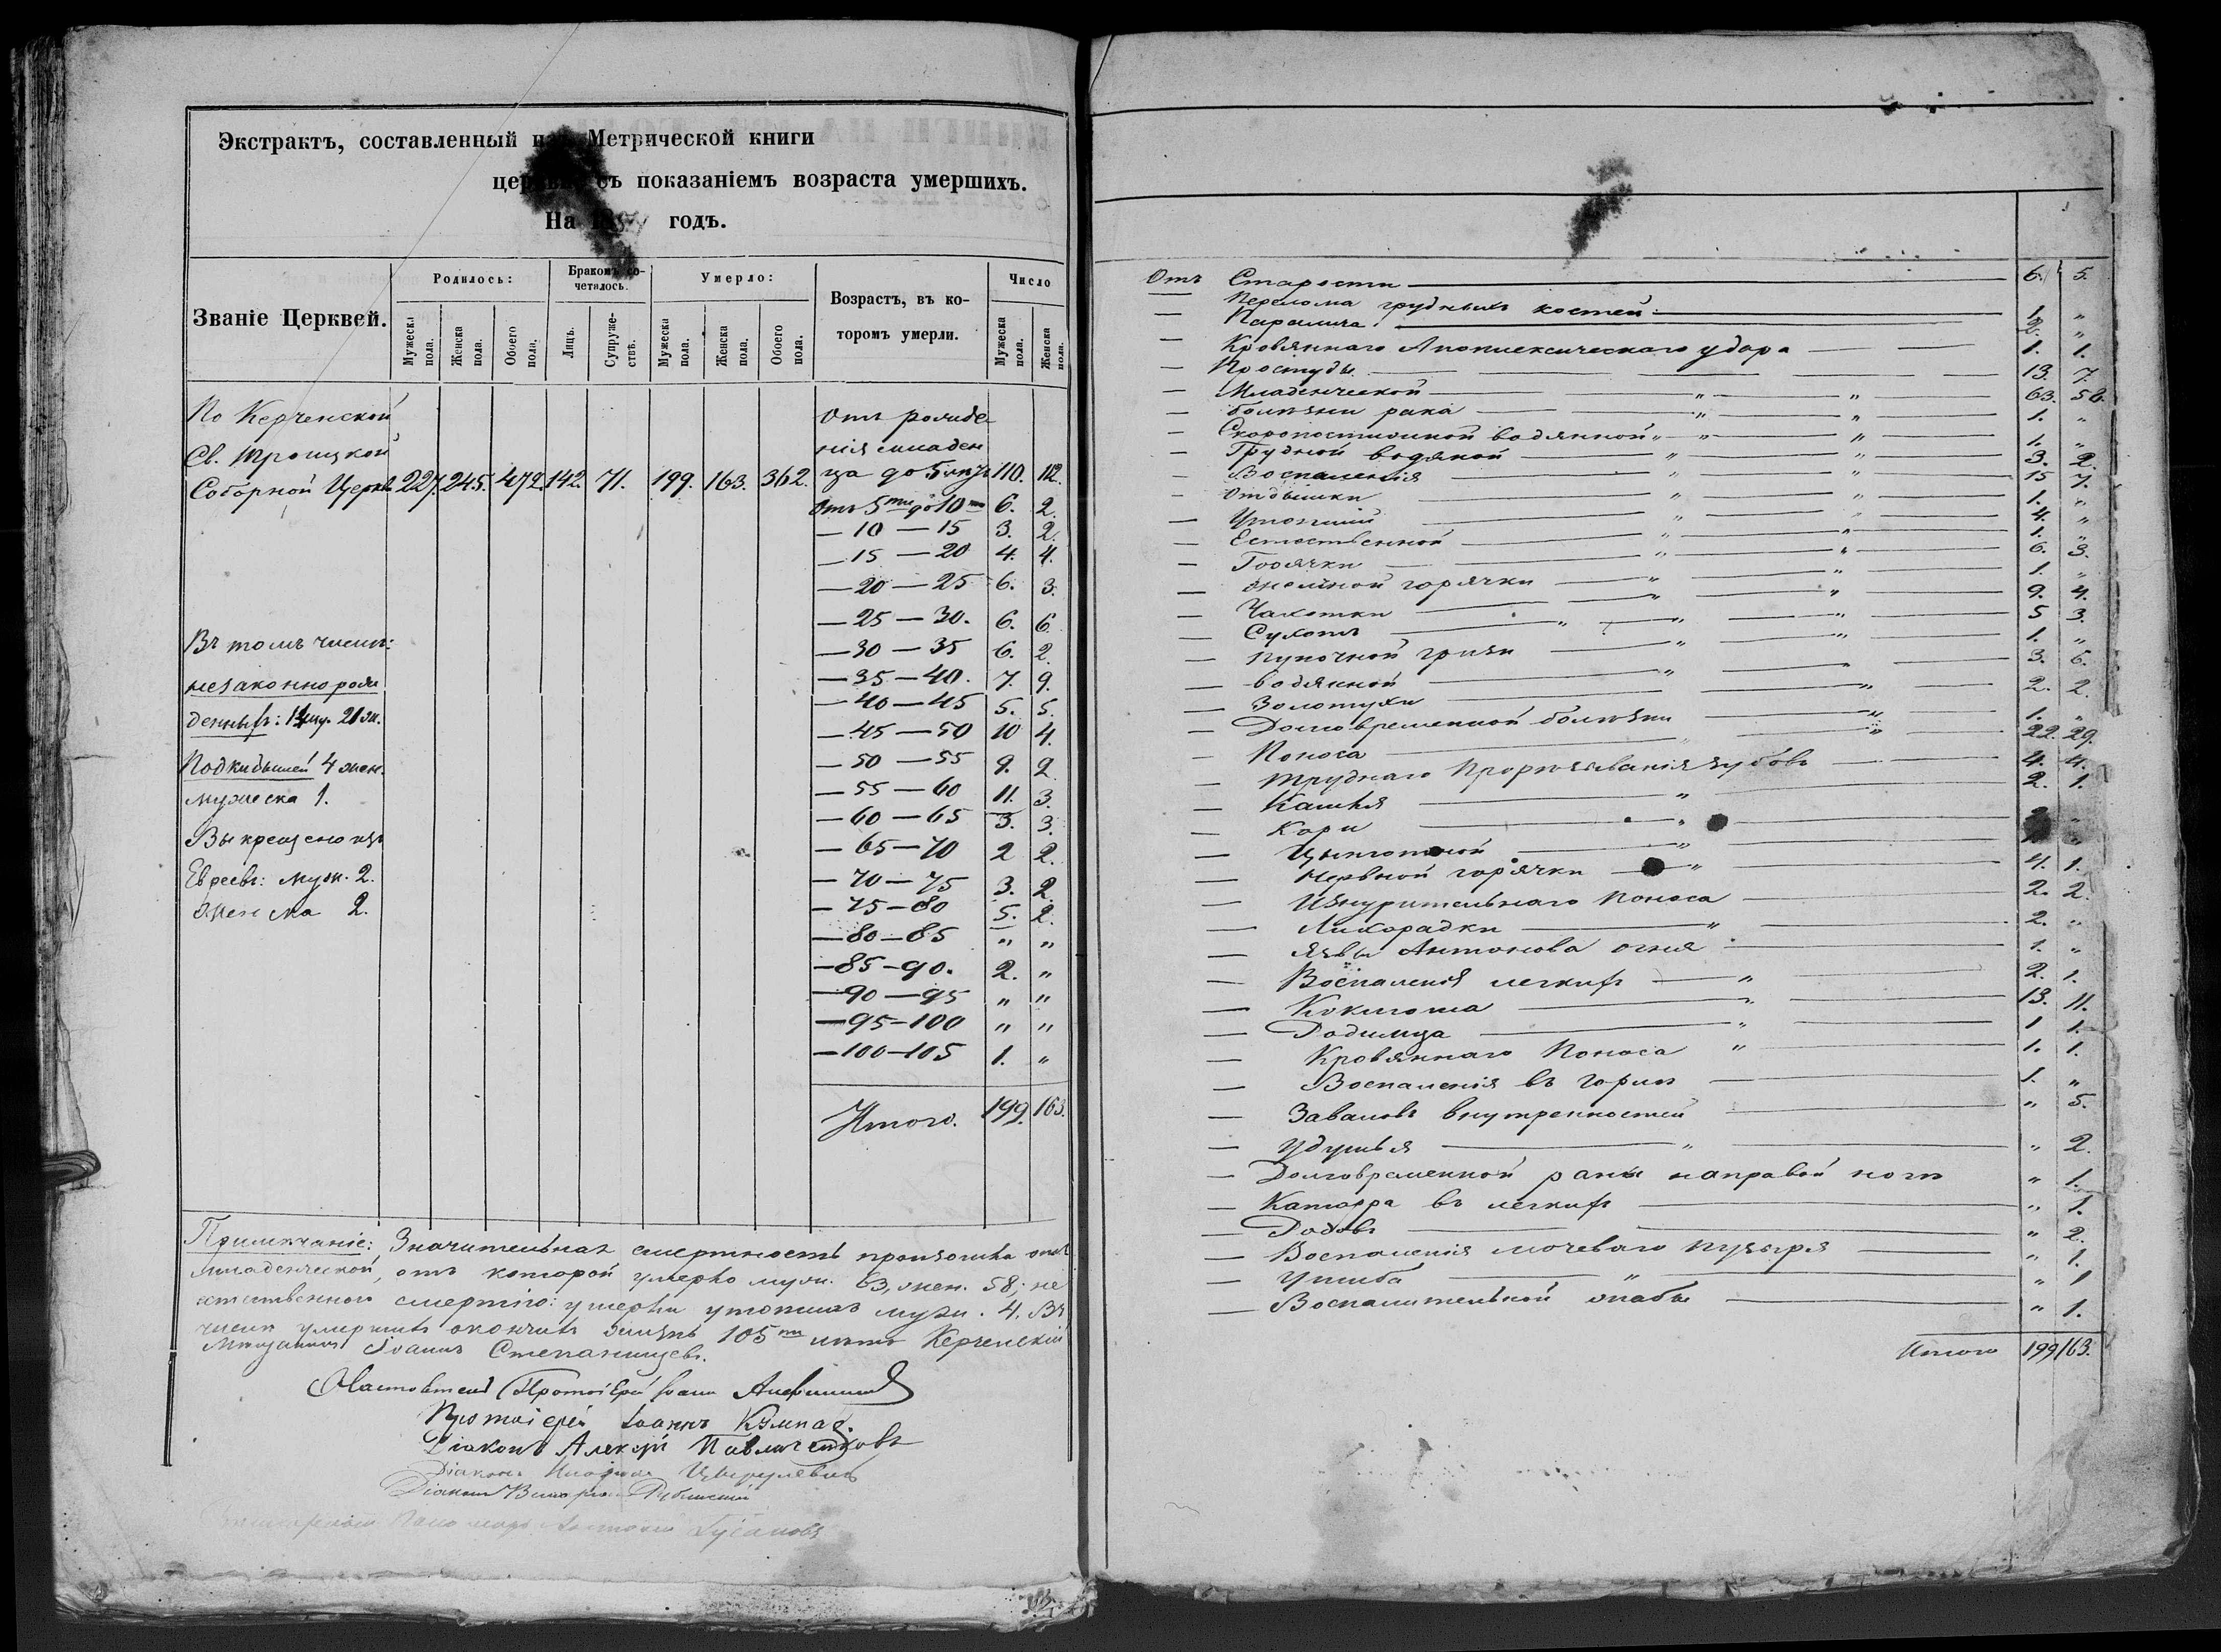 Экстрактъ, составленный изъ Метрической книги
церкви съ показаніемъ возраста умершихъ.
На годъ.
Званіе Церквей.
Родилось:
Бракомъ со-
четалось.
Умерло:
Возрастъ, въ ко-
торомъ умерли.
Число
Мужеска пола.
Женска пола.
Обоего пола.
Лицъ.
Супруже-
ствъ.
Мужеска пола.
Женска пола.
Обоего пола.
Мужеска пола.
Женска пола.
По Керченской
Св. Троицкой
Соборной Церкви 227. 245. 472. 142. 71. 199. 163. 362.
Отъ рожде
нія младен
ца до 5 лѣтъ 110. 112.
Отъ 5ти до 10ти 6. 2.
— 10 — 15 3. 2.
— 15 — 20 4. 4.
— 20 — 25 6. 3.
— 25 — 30. 6. 6
— 30 — 35 6. 2.
— 35 — 40. 7. 9.
— 40 — 45 5. 5.
— 45 — 50 10 4.
— 50 — 55 9. 2
— 55 — 60 11. 3.
— 60 — 65 3. 3.
— 65 — 70 2 2.
— 70 — 75 3. 2
— 75 — 80 5. 2.
— 80 — 85 " "
— 85 — 90. 2. "
— 90 — 95 " "
— 95 — 100 " "
— 100 — 105 1. "
Итого. 199. 163.
Въ томъ числѣ:
незаконнорож
денныхъ: муж. 21 ж.
Подкидышей 4 жен.
мужеска 1.
Выкрещено изъ
Евреевъ: муж. 2.
женска 2.
Примѣчаніе: Значительная смертность произошла отъ
младенческой, отъ которой умерло муж. 63, жен. 58; не
естественною смертію: умерли утопшихъ муж. 4. Въ
числѣ умершихъ окончилъ жизнь 105ти лѣтъ Керченскій
Мѣщанинъ Іоаннъ Степанищевъ.
Настоятель Протоіерей Іоаннъ
Протоіерей Іоаннъ Кумпа
Діаконъ Алексѣй Павличенковъ
Діаконъ
Діаконъ
Пономарь Гусаковъ
Отъ Старости — 6. 5.
— Перелома грудныхъ костей — 1. "
— Паралича — 2. "
— Кровяннаго Апоплексическаго удара — 1. 1.
— Простуды — 13. 7.
— Младенческой — " " — 63. 58.
— болѣзни рака — " " — 1. "
— Скоропостижной водянной " " " — 1. "
— Грудной водяной — " — 3. 2.
— Воспаленія — " " — 15 7.
— Отдышки " " — 1. "
— Утопшій " " — 4. "
— Естественной — " " — 1. "
— Горячки — " " — 6. 3.
— горячки — " " — 1. "
— Чахотки — " " — 9. 4.
— Сухотъ — " " " — 5 3.
— пупочной грызи — " " — 1. "
— водянной — " " — 3. 6.
— Золотухи — " — 2. 2.
— Долговременной болѣзни — " — 1. "
— Поноса — " — 22. 29.
— Труднаго Прорѣзыванія зубовъ — 4. 4.
— Кашля — " — 2. 1.
— Кори — " —
— Цынготной — " —
— Нервной горячки — " — 4. 1.
— Изнурительнаго Поноса — 2. 2.
— Лихорадки — " — 2. "
— Язвы Антонова огня — 1. "
— Воспаленія легкихъ — " — 2. 1.
— Коклюша — " — 13. 11.
— Родимца — " — 1 1.
— Кровяннаго Поноса " — 1. 1.
— Воспаленія въ горлѣ — 1. "
— Заваловъ внутренностей — " 5.
— Удушья — " — " 2.
— Долговременной раны на правой ногѣ " 1.
— Катарра въ легкихъ — " 1.
— Родовъ — " 2.
— Воспаленія мочеваго пузыря — " 1.
— Ушиба — " — " 1
— Воспалительной жабы — " 1.
Итого 199 163.